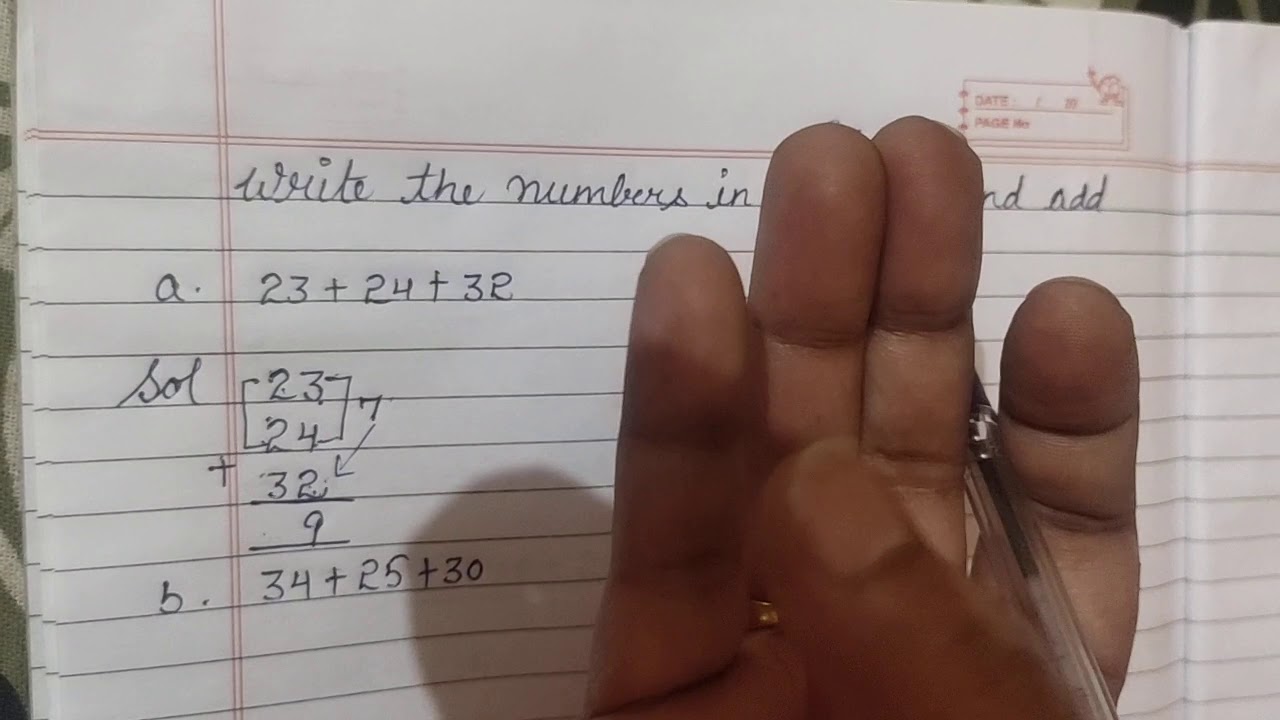 DATE: / 20
PAGE No
Write the numbers in nd add
a. 23 + 24 + 32
Sol 23
24 7
+ 32
9
b. 34 + 25 + 30